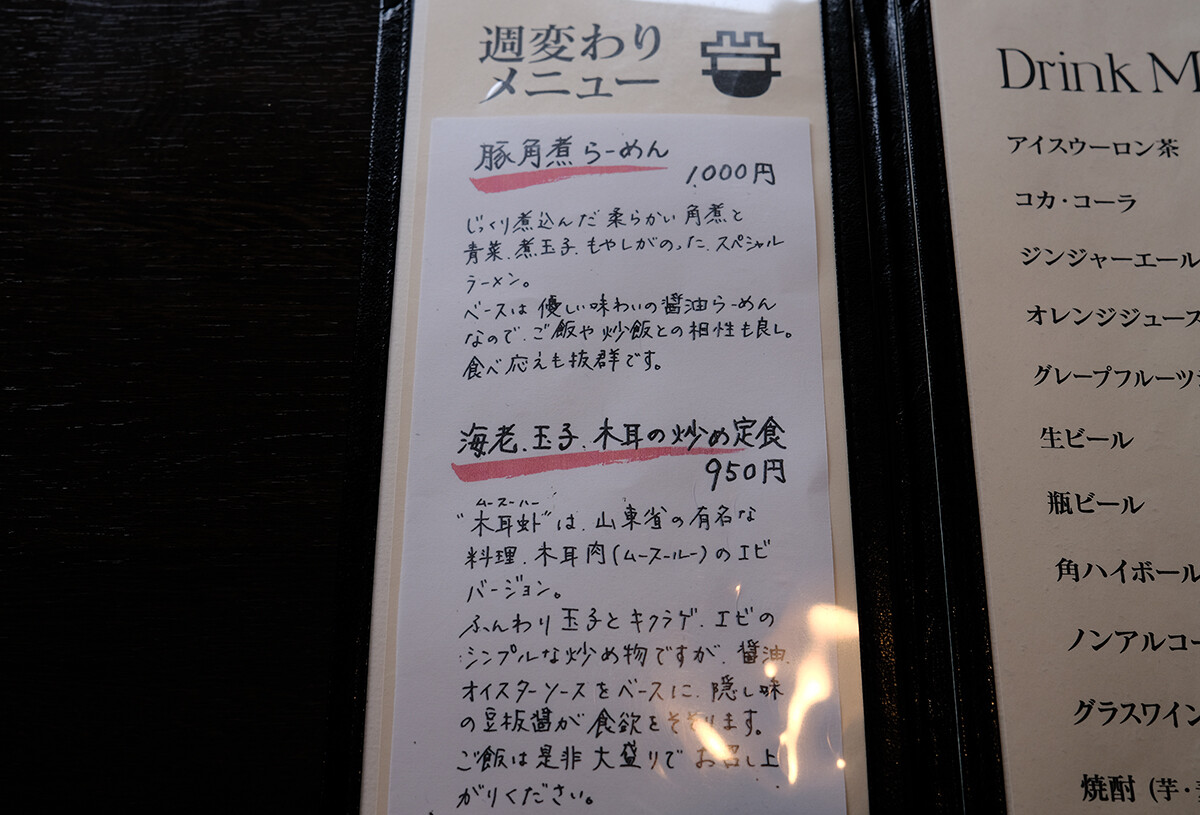 週変わり
メニュー
豚角煮らーめん
1000円
じっくり煮込んだ柔らかい角煮と
青菜、煮玉子、もやしがのった、スペシャル
ラーメン。
ベースは優しい味わいの醤油らーめん
なので、ご飯や炒飯との相性も良し。
食べ応えも抜群です。
海老、玉子、木耳の炒め定食
950円
ムースーハー
"木耳虾"は、山東省の有名な
料理、木耳肉(ムースールー)のエビ
バージョン。
ふんわり玉子とキクラゲ、エビの
シンプルな炒め物ですが、醤油、
オイスターソースをベースに、隠し味
の豆板醤が食欲をそそります。
ご飯は是非大盛りでお召し上
がりください。
Drink M
アイスウーロン茶
コカ・コーラ
ジンジャーエール
オレンジジュース
グレープフルーツ
生ビール
瓶ビール
角ハイボール
ノンアルコー
グラスワイン
焼酎 (芋・